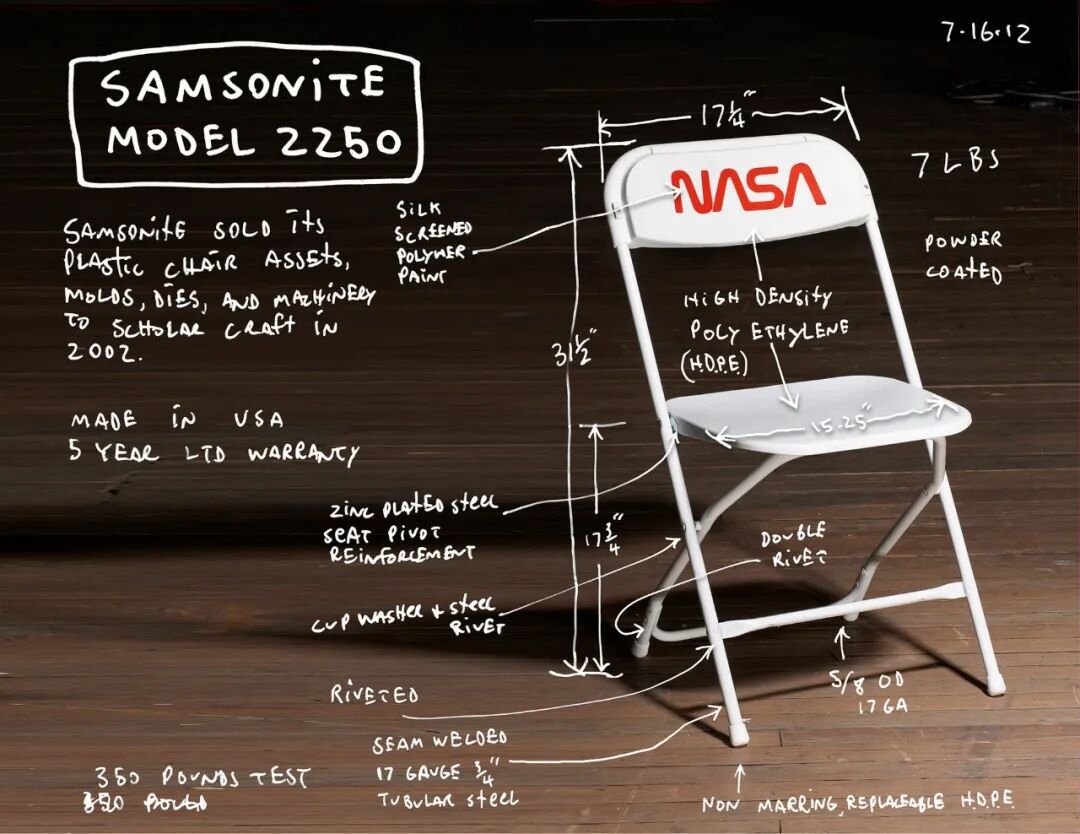 7-16-12
SAMSONITE
MODEL 2250
SAMSONITE SOLD ITS
PLASTIC CHAIR ASSETS,
MOLDS, DIES, AND MACHINERY
TO SCHOLAR CRAFT IN
2002.
MADE IN USA
5 YEAR LTD WARRANTY
SILK
SCREENED
POLYMER
PAINT
17 1/4"
NASA
7 LBS
POWDER
COATED
HIGH DENSITY
POLY ETHYLENE
(H.D.P.E.)
31 1/2"
15.25"
17 3/4"
ZINC PLATED STEEL
SEAT PIVOT
REINFORCEMENT
DOUBLE
RIVET
CUP WASHER + STEEL
RIVET
RIVETED
5/8 OD
17 GA
SEAM WELDED
17 GAUGE 3/4"
TUBULAR STEEL
350 POUNDS TEST
NON MARRING, REPLACEABLE H.D.P.E.